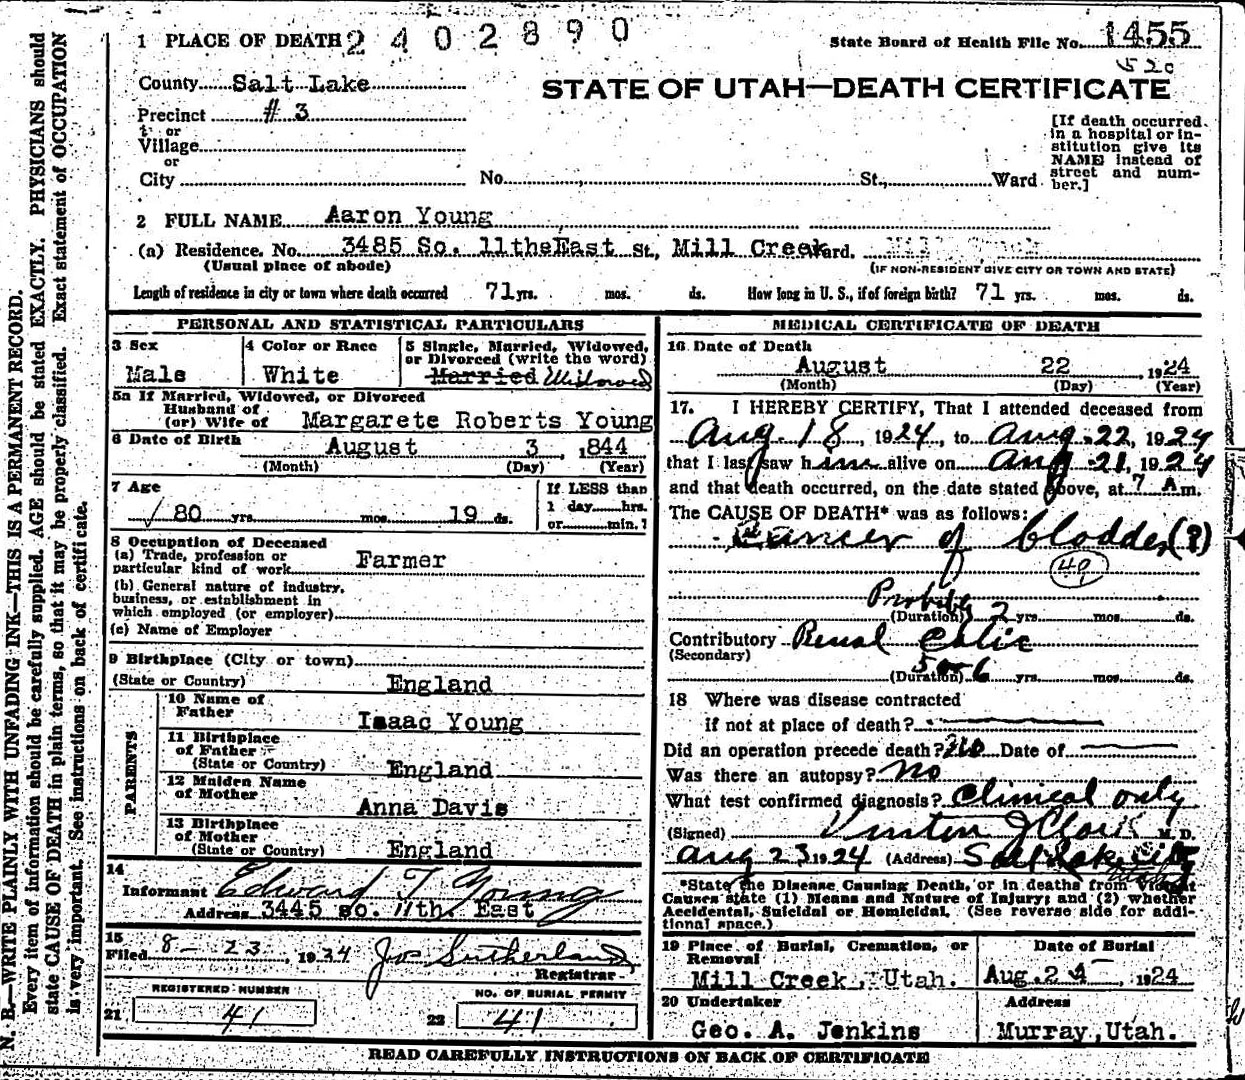 1 PLACE OF DEATH 2402890
State Board of Health File No. 1455
520
County Salt Lake
STATE OF UTAH—DEATH CERTIFICATE
Precinct # 3
or
Village
or
City No. St., Ward
[If death occurred in a hospital or institution give its NAME instead of street and number.]
2 FULL NAME Aaron Young
(a) Residence. No. 3485 So. 11theEast St., Mill Creek Ward. Mill Creek
(Usual place of abode) (IF NON-RESIDENT GIVE CITY OR TOWN AND STATE)
Length of residence in city or town where death occurred 71 yrs. mos. ds. How long in U. S., if of foreign birth? 71 yrs. mos. ds.
PERSONAL AND STATISTICAL PARTICULARS
3 Sex Male
4 Color or Race White
5 Single, Married, Widowed, or Divorced (write the word)
Married Widowed
5a If Married, Widowed, or Divorced
Husband of
(or) Wife of Margarete Roberts Young
6 Date of Birth August 3, 1844
(Month) (Day) (Year)
7 Age
80 yrs. mos. 19 ds.
If LESS than
1 day hrs.
or min.?
8 Occupation of Deceased
(a) Trade, profession or
particular kind of work Farmer
(b) General nature of industry,
business, or establishment in
which employed (or employer)
(c) Name of Employer
9 Birthplace (City or town)
(State or Country) England
PARENTS
10 Name of
Father Isaac Young
11 Birthplace
of Father
(State or Country) England
12 Maiden Name
of Mother Anna Davis
13 Birthplace
of Mother
(State or Country) England
14
Informant Edward T Young
Address 3445 so. 11th. East
15
Filed 8-23, 1924 Jos Sutherland
Registrar
REGISTERED NUMBER
21 41
NO. OF BURIAL PERMIT
22 41
MEDICAL CERTIFICATE OF DEATH
16 Date of Death
August 22, 1924
(Month) (Day) (Year)
17. I HEREBY CERTIFY, That I attended deceased from
Aug. 18, 1924, to Aug. 22, 1924
that I last saw him alive on Aug 21, 1924
and that death occurred, on the date stated above, at 7 A m.
The CAUSE OF DEATH* was as follows:
Cancer of bladder (?)
49
Probably
(Duration) 2 yrs. mos. ds.
Contributory Renal Colic
(Secondary)
5 or 6
(Duration) yrs. mos. ds.
18 Where was disease contracted
if not at place of death?
Did an operation precede death? No Date of
Was there an autopsy? No
What test confirmed diagnosis? Clinical only
(Signed) J Clark M. D.
Aug 23 1924 (Address) Salt Lake City
Utah
*State the Disease Causing Death, or in deaths from Violent
Causes state (1) Means and Nature of Injury; and (2) whether
Accidental, Suicidal or Homicidal. (See reverse side for addi-
tional space.)
19 Place of Burial, Cremation, or
Removal
Mill Creek, Utah.
Date of Burial
Aug. 25 1924
20 Undertaker
Geo. A. Jenkins
Address
Murray, Utah.
READ CAREFULLY INSTRUCTIONS ON BACK OF CERTIFICATE
N. B.—WRITE PLAINLY WITH UNFADING INK—THIS IS A PERMANENT RECORD.
Every item of information should be carefully supplied. AGE should be stated EXACTLY. PHYSICIANS should
state CAUSE OF DEATH in plain terms, so that it may be properly classified. Exact statement of OCCUPATION
is very important. See instructions on back of certificate.